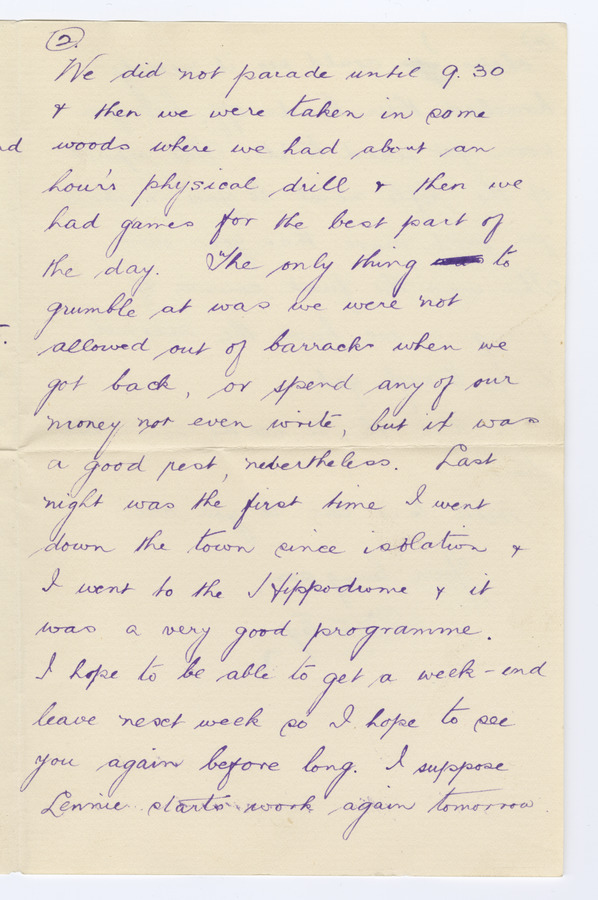 2.
We did not parade until 9.30
& then we were taken in some
woods where we had about an
hour's physical drill & then we
had games for the best part of
the day. The only thing to
grumble at was we were not
allowed out of barracks when we
got back, or spend any of our
money not even write, but it was
a good rest, nevertheless. Last
night was the first time I went
down the town since isolation &
I went to the Hippodrome & it
was a very good programme.
I hope to be able to get a week-end
leave next week so I hope to see
you again before long. I suppose
Lennie starts work again tomorrow.